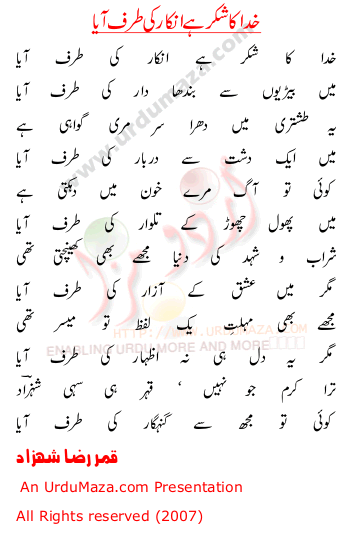 خدا کا شکر ہے انکار کی طرف آیا
خدا کا شکر ہے انکار کی طرف آیا
میں بیڑیوں سے بندھا دار کی طرف آیا
یہ طشتری میں دھرا سر مری گواہی ہے
میں ایک دشت سے دربار کی طرف آیا
کوئی تو آگ مرے خون میں دہکتی ہے
میں پھول چھوڑ کے تلوار کی طرف آیا
شراب و شہد کی دنیا مجھے بھی کھینچتی تھی
مگر میں عشق کے آزار کی طرف آیا
مجھے بھی مہلتِ یک لفظ تو میسر تھی
مگر یہ دل ہی نہ اظہار کی طرف آیا
ترا کرم جو نہیں ، قہر ہی سہی شہزاد
کوئی تو مجھ سے گنہگار کی طرف آیا
قمر رضا شہزاد
An UrduMaza.com Presentation
All Rights reserved (2007)
www.urdumaza.com
اردو مزا
HTTP://WWW.URDUMAZA.COM
ENABLING URDU MORE AND MORE